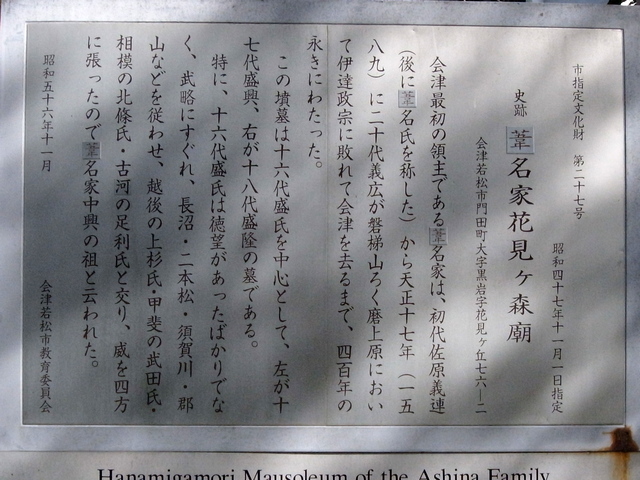 市指定文化財 第二十七号
昭和四十七年十一月一日指定
史跡 葦名家花見ヶ森廟
会津若松市門田町大字黒岩字花見ヶ丘七六―二
会津最初の領主である葦名家は、初代佐原義連
（後に葦名氏を称した）から天正十七年（一五
八九）に二十代義広が磐梯山ろく磨上原におい
て伊達政宗に敗れて会津を去るまで、四百年の
永きにわたった。
この墳墓は十六代盛氏を中心として、左が十
七代盛興、右が十八代盛隆の墓である。
特に、十六代盛氏は徳望があったばかりでな
く、武略にすぐれ、長沼・二本松・須賀川・郡
山などを従わせ、越後の上杉氏・甲斐の武田氏・
相模の北條氏・古河の足利氏と交り、威を四方
に張ったので葦名家中興の祖と云われた。
昭和五十六年十一月
会津若松市教育委員会
Hanamigamori Mausoleum of the Ashina Family